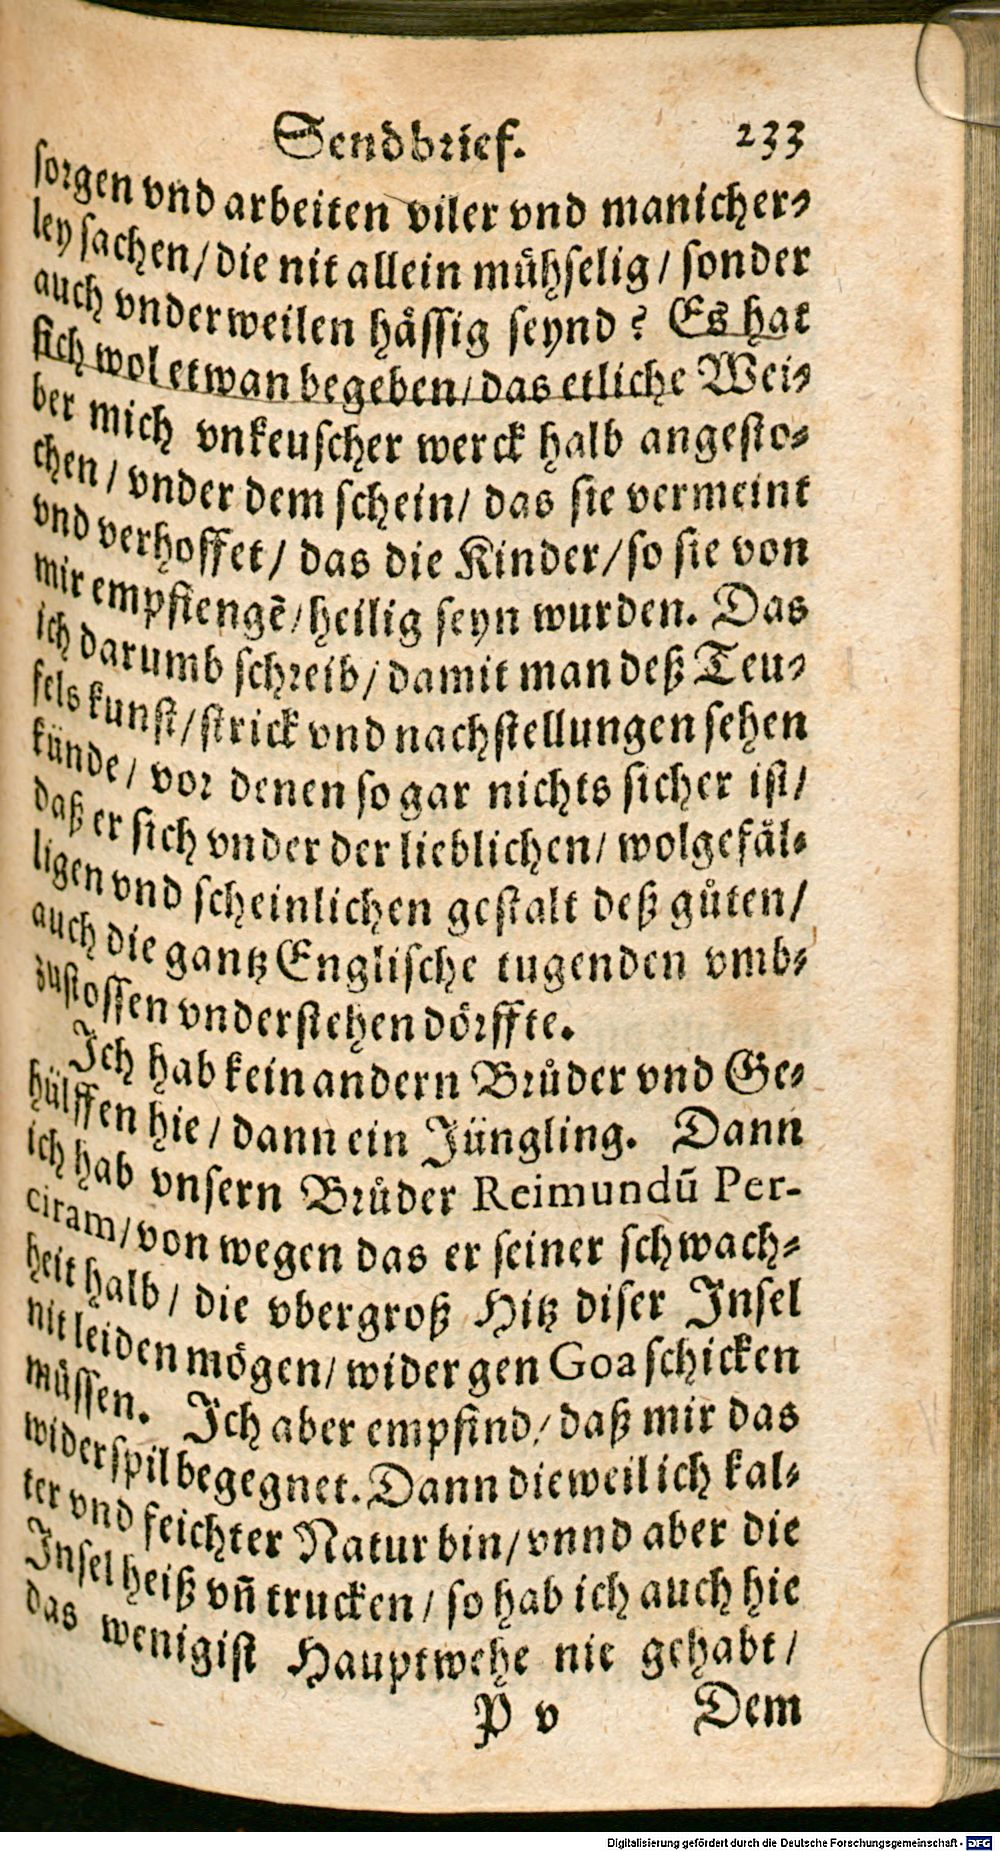 Sendbrief. 233
sorgen vnd arbeiten viler vnd manicher⸗
ley sachen / die nit allein mühselig / sonder
auch vnderweilen hässig seynd? Es hat
sich wol etwan begeben / das etliche Wei⸗
ber mich vnkeuscher werck halb angesto⸗
chen / vnder dem schein / das sie vermeint
vnd verhoffet / das die Kinder / so sie von
mir empfiengẽ / heilig seyn wurden. Das
ich darumb schreib / damit man deß Teu⸗
fels kunst / strick vnd nachstellungen sehen
künde / vor denen so gar nichts sicher ist /
daß er sich vnder der lieblichen / wolgefäl⸗
ligen vnd scheinlichen gestalt deß gůten /
auch die gantz Englische tugenden vmb⸗
zustossen vnderstehen dörffte.
Ich hab kein andern Brůder vnd Ge⸗
hülffen hie / dann ein Jüngling. Dann
ich hab vnsern Brůder Reimundũ Per-
ciram / von wegen das er seiner schwach⸗
heit halb / die vbergroß Hitz diser Insel
nit leiden mögen / wider gen Goa schicken
müssen. Ich aber empfind / daß mir das
widerspil begegnet. Dann dieweil ich kal⸗
ter vnd feichter Natur bin / vnnd aber die
Insel heiß vñ trucken / so hab ich auch hie
das wenigist Hauptwehe nie gehabt /
P v Dem
Digitalisierung gefördert durch die Deutsche Forschungsgemeinschaft - DFG